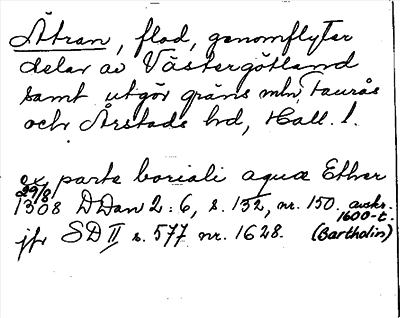 Ätran, flod, genomflyter
delar av Västergötland
samt utgör gräns mln, Faurås
och Årstads hd, Hall. l.
ex parte boriali aquæ Ether
29/8 1308 DDan 2:6, s. 132, nr. 150. avskr. 1600-t.
jfr SD II s. 577 nr. 1628. (Bartholin)